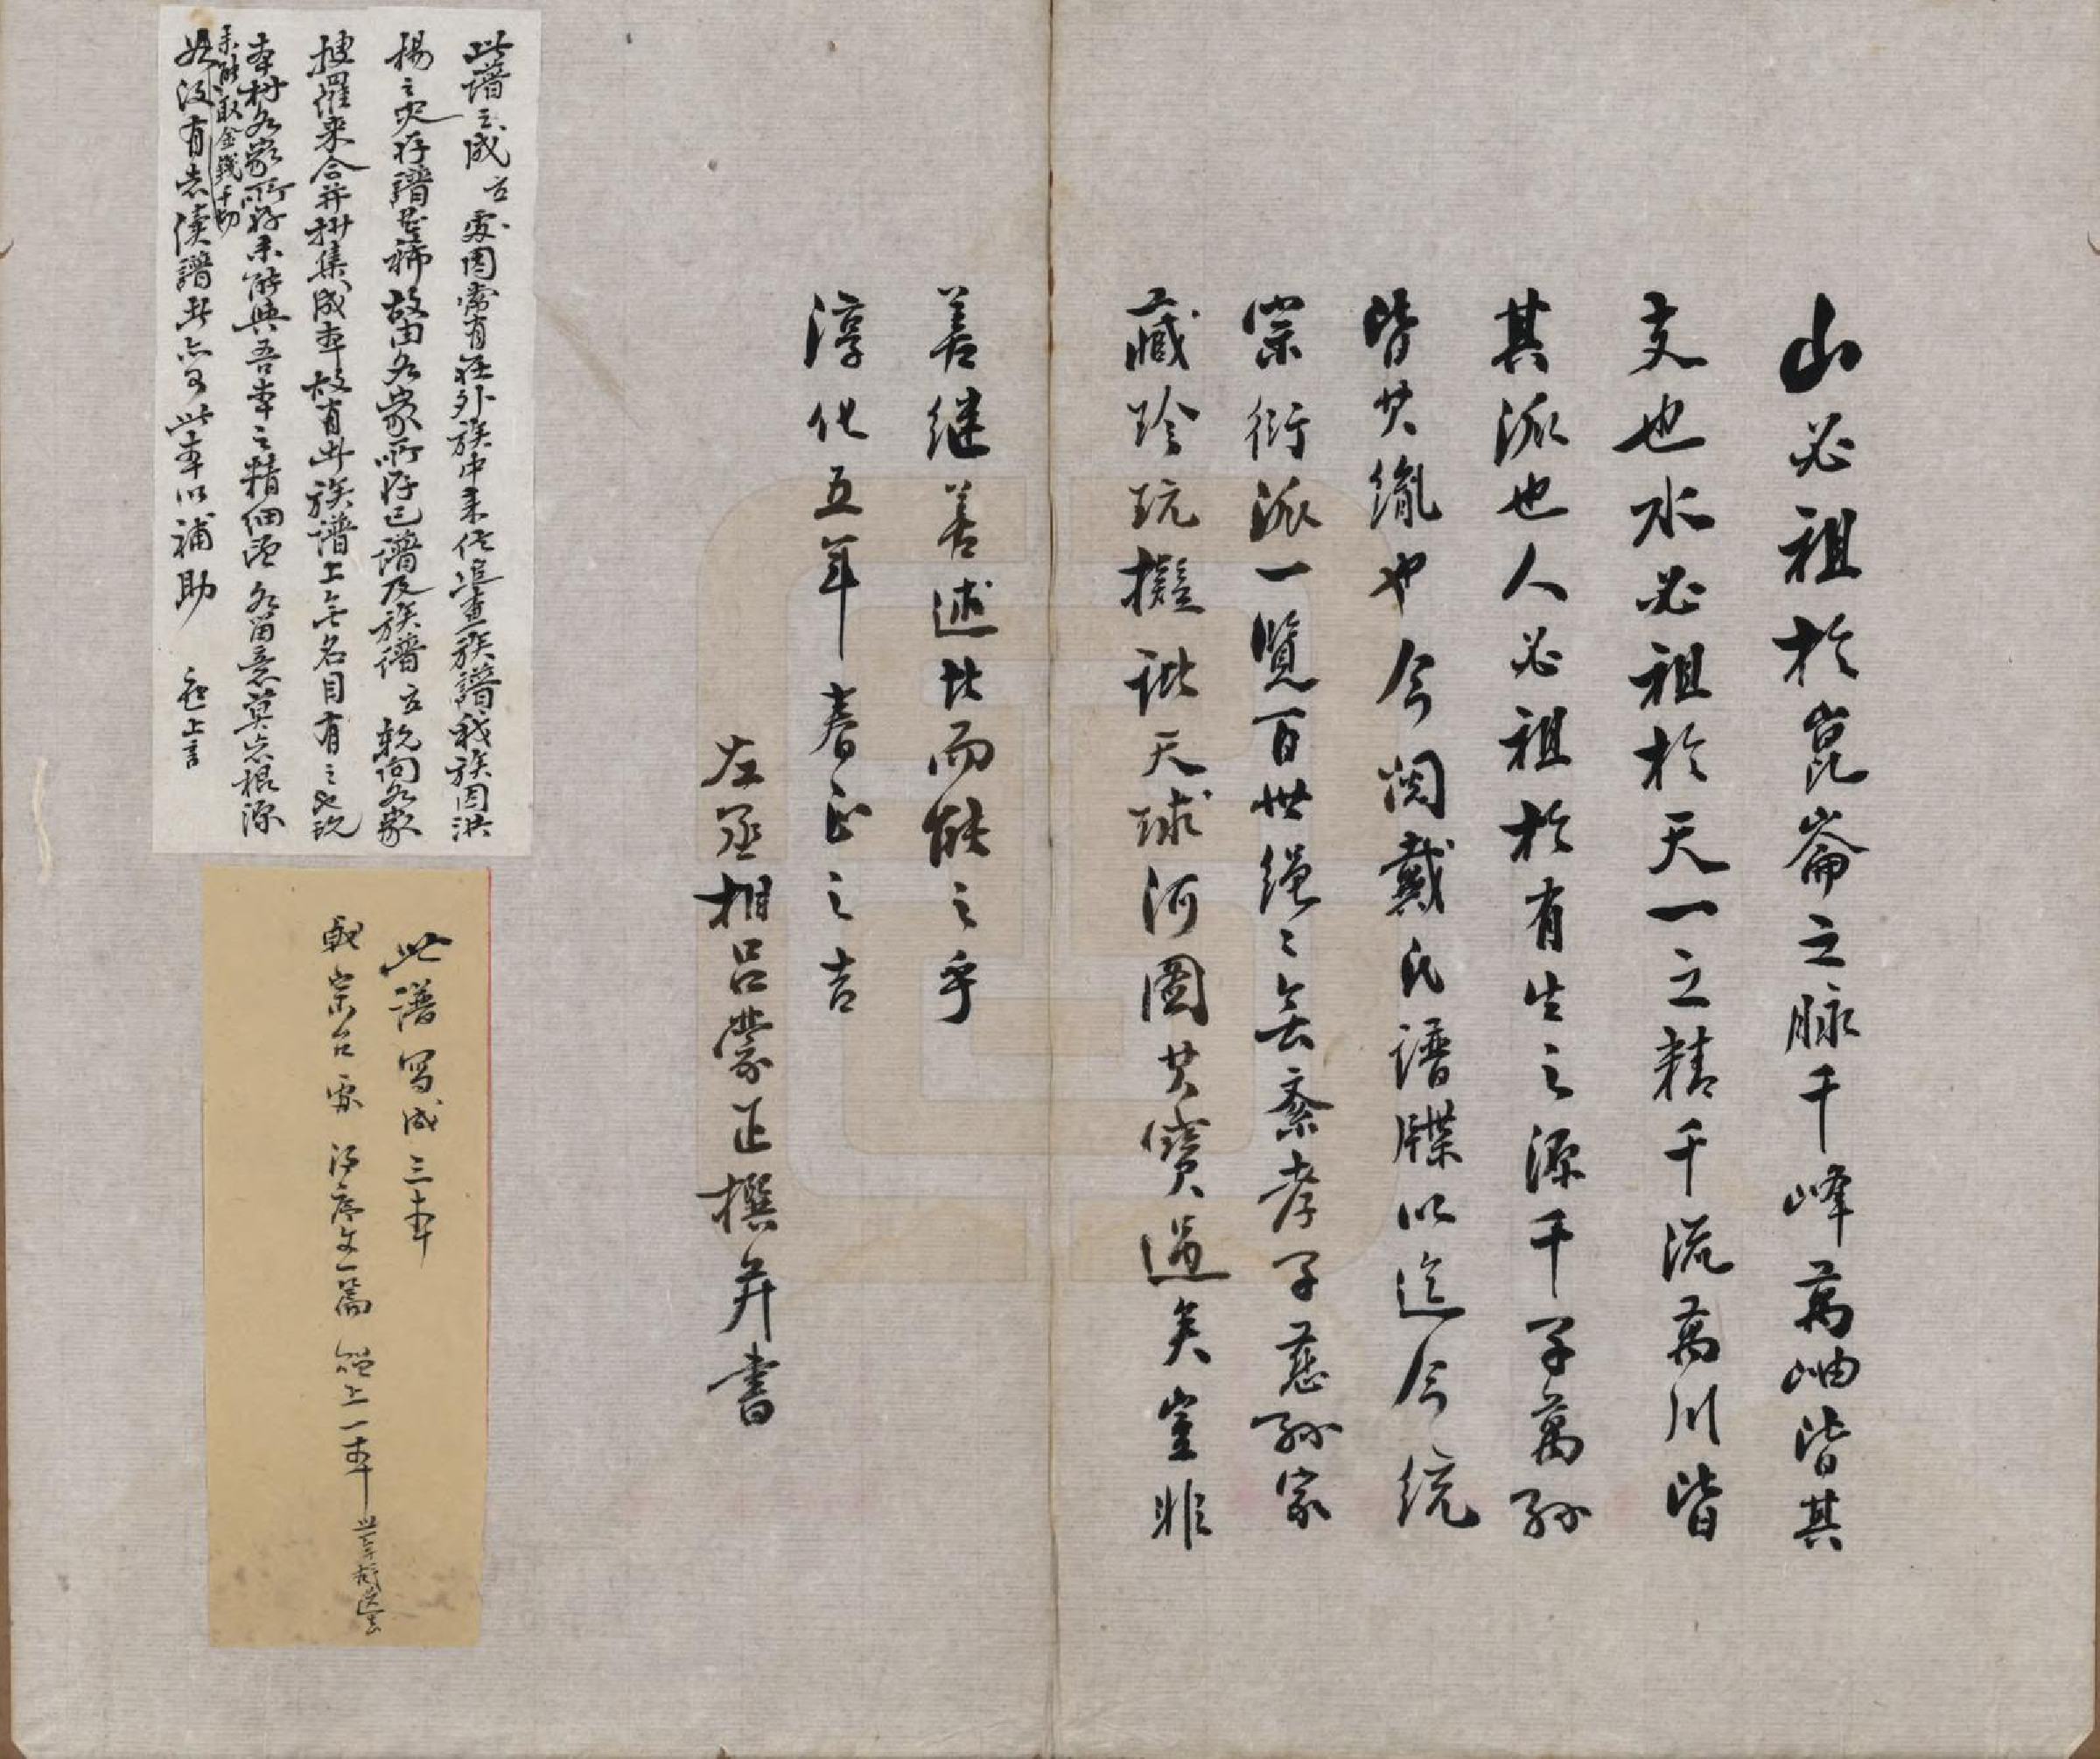 山必祖於崑崙之脉千峰萬岫皆其
支也水必祖於天一之精千流萬川皆
其派也人必祖於有生之源千子萬孫
皆其胤也今閱戴氏譜牒以迄今統
宗衍派一覽百世繩々無紊孝子慈孫家
藏珍玩擬諸天球河圖其寶過矣豈非
善继善述比而能之乎
淳化五年春正之吉
左丞相吕蒙正撰并書
此譜之成立處因常有在外族中來信追查族譜我族因洪
楊之灾存譜甚稀故由各家所存己譜及族譜立乾向各家
搜羅来合并抄集成本故有此族譜上無名目有之也玩
本村各家所存未能與吾本之精细源各留意莫忘根源
未能取金錢千切
如没有志续譜者亦可此本以補助 上言
此譜写成三本
宗台處 序文一篇 上一本